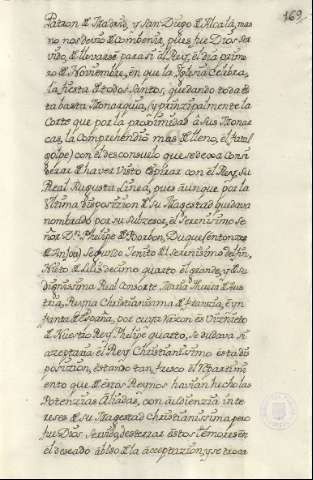 169
Patron de Madrid, y San Diego de Alcalá, mas
no nos devió de Combenir, pues fue Dios Ser
vido, de llevarse para si al Rey, el dia primero
de Noviembre, en que la Iglesia Celebra,
la fiesta de todos Santos, quedando toda es
ta basta Monarquia, (y principalmente la
Corte que por la proximidad à Sus Monar
cas, la Comprehendio mas de lleno, el fatal
golpe) con el desconsuelo que se deva Consi
derar de haver Visto espirar con el Rey, Su
Real Augusta Linea, pues aunque por la
Ultima disposicion de su Magestad quedava
nombrado por su Subzesor, el Serenisimo Se
ñor Dn. Phelipe de Borbon, Duque (entonzes
de Anjou) Segundo Jenito del Serenisimo delfin,
Nieto de Luis decimo quarto el grande, y de su
dignissima Real Consorte Maria Theresa de Aus
tria, Reyna Christianisima de Francia, è yn
fanta de España, por cuya razon és Viznieto
de Nuestro Rey Phelipe quarto, se dudava si
azeptaria el Rey Christianisimo esta dis
posizion, estando tan fresco el Repartimi
ento que de estos Reynos havian hecho las
Potenzias Aliadas, con audienzia inte
reses de su Magestad Christianissima, pero
fue Dios Servido, desterrar estos temores en
el deseado abiso de la azeptazion, y se troca